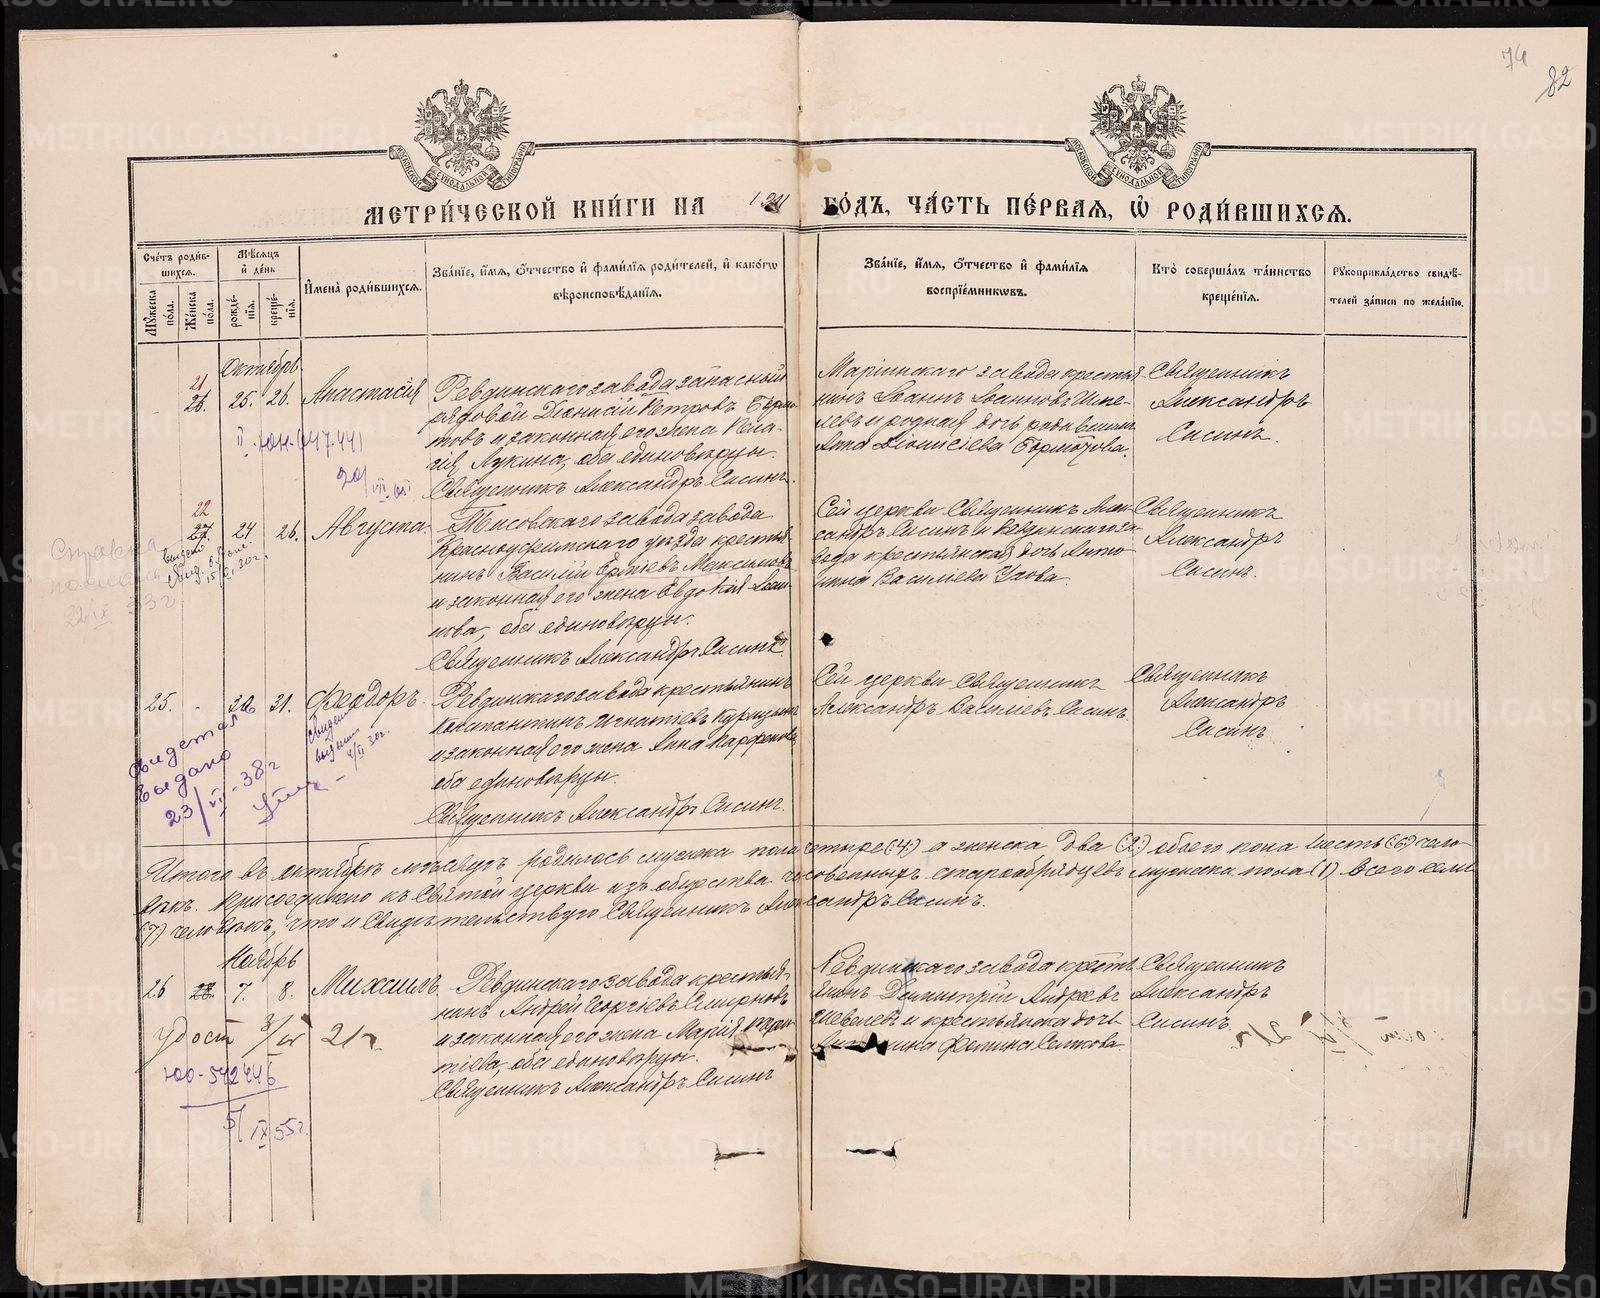 74
82
МЕТРИ́ЧЕСКОЙ КНИ́ГИ НА 1911 ГО́ДЪ, ЧА́СТЬ ПЕ́РВАЯ, Ѡ҆ РОДИ́ВШИХСЯ.
Сче́тъ роди́в-
шихся.
Мѣ́сяцъ
и҆ де́нь
Мꙋ́жеска по́ла.
Же́нска по́ла.
рожде́-
нїя.
креще́-
нїя.
И҆мена̀ роди́вшихся.
Зва́нїе, и҆́мя, ѻ҆́тчество и҆ фами́лїя роди́телей, и҆ како́гѡ
вѣроисповѣ́данїя.
Зва́нїе, и҆́мя, ѻ҆́тчество и҆ фами́лїя
воспрїе́мникѡвъ.
Кто̀ соверша́лъ та́инство
креще́нїя.
Рꙋкоприкла́дство свидѣ́-
телей за́писи по жела́нїю.
Октябрь
21
26.
25. 26.
Анастасія
Ревдинскаго завода запасный
рядовой Діонисій Петровъ Бормо-
товъ и законная его жена Пела-
гія Лукина, оба единовѣрцы.
Священникъ Александръ Сисинъ.
Маріинскаго завода крестья-
нинъ Іваннъ Іванновъ
и родная дочь родившихъ
Анна Діонисіева Бормотова.
Священникъ
Александръ
Сисинъ.
22
27.
24 26.
Августа.
Тисовскаго завода завода
Красноуфимскаго уѣзда крестья-
нинъ Василій Ергіевъ Максимовъ
и законная его жена Евдокія
нова, оба единовѣрцы.
Священникъ Александръ Сисинъ
Сей церкви Священникъ Алек-
сандръ Сисинъ и Ревдинскаго за-
вода крестьянская дочь Анто-
нина Василіева Ухова.
Священникъ
Александръ
Сисинъ.
Справка
22 IX 33 г.
25. - 30. 31.
Феодоръ.
Ревдинскаго завода крестьянинъ
Константинъ Игнатіевъ Курицынъ
и законная его жена Анна Парфенова
оба единовѣрцы.
Священникъ Александръ Сисинъ.
Сей церкви Священникъ
Александръ Василіевъ Сисинъ
Священникъ
Александръ
Сисинъ
Свидетель
выдано
23/VII-38 г
Итого въ октябрѣ мѣсяцѣ родилось мужска пола четыре (4) а женска два (2) обоего пола шесть (6) чело-
вѣкъ. Присоединено къ Святой церкви изъ общества часовенныхъ старообрядцевъ мужска пола (1) Всего семь
(7) человѣкъ, что и свидѣтельствую Священникъ Александръ Сисинъ.
Ноябрь
26 28. 7. 8.
Михаилъ.
Ревдинскаго завода крестья-
нинъ Андрей Георгіевъ Смирновъ
и законная его жена Марія
тіева, оба единовѣрцы.
Священникъ Александръ Сисинъ
Ревдинскаго завода кресть
янинъ Димитрій Андреевъ
Шевелевъ и крестьянска дочь
Антонина Фомина Селкова
Священникъ
Александръ
Сисинъ.
Удост 3/IV 21 г.
ЮО-542446
5/IX 55 г.
METRIKI.GASO-URAL.RU